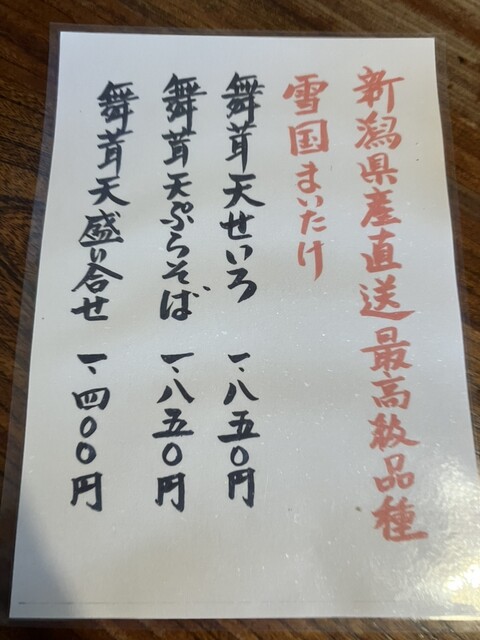 新潟県産直送最高級品種
雪国まいたけ
舞茸天せいろ 一、八五〇円
舞茸天ぷらそば 一、八五〇円
舞茸天盛り合せ 一、四〇〇円